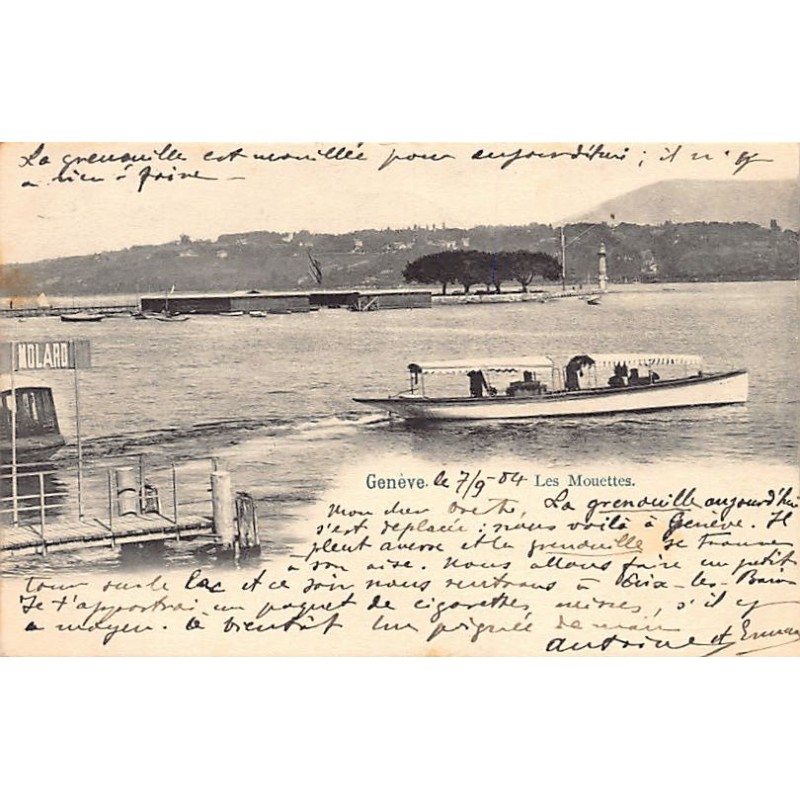 La grenouille est mouillée pour aujourd'hui ; il n'y
a rien à faire –
MOLARD
Genève. le 7/9 - 04 Les Mouettes.
Mon cher La grenouille aujourd'hui
s'est deplacée : nous voilà à Genève. Il
pleut averse et la grenouille se trouve
à son aise. Nous allons faire un petit
tour sur le lac et ce soir nous rentrons à Aix-les-Bains
Je t'apporterai un paquet de cigarettes suisses, s'il y
a moyen. A bientôt Une poignée de main